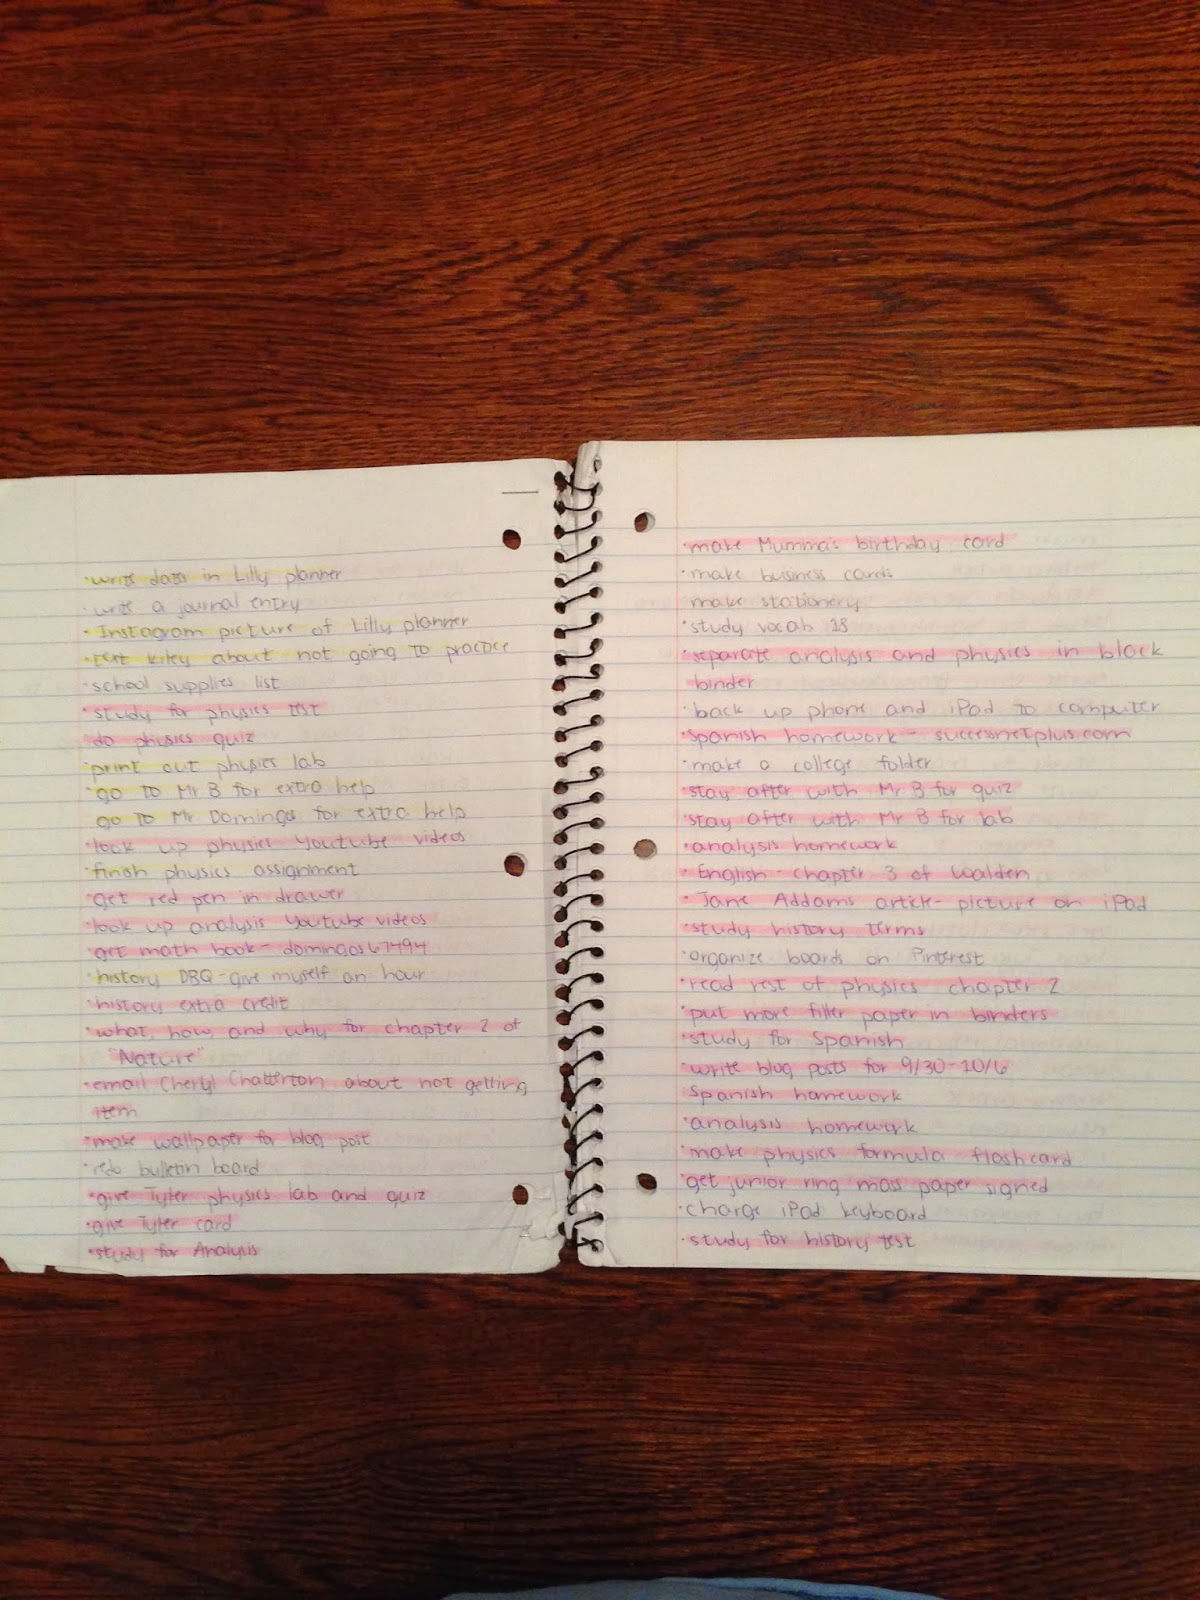 ·write data in Lilly planner
·write a journal entry
·Instagram picture of Lilly planner
·text Kiley about not going to practice
·school supplies list
·study for physics test
do physics quiz
·print out physics lab
·go to Mr B for extra help
go to Mr Domingos for extra help
·look up physics Youtube videos
·finish physics assignment
·get red pen in drawer
·look up analysis Youtube videos
·get math book - domingos67494
·history DBQ - give myself an hour
·history extra credit
·what, how, and why for chapter 2 of
"Nature"
·email Cheryl Chatterton about not getting
item
·make wallpaper for blog post
·redo bulletin board
·give Tyler physics lab and quiz
·give Tyler card
·study for Analysis
·make Mumma's birthday card
·make business cards
make stationery
·study vocab 18
·separate analysis and physics in black
binder
·back up phone and iPad to computer
·Spanish homework - successnetplus.com
·make a college folder
·stay after with Mr B for quiz
·stay after with Mr B for lab
·analysis homework
·English - chapter 3 of Walden
·Jane Addams article - picture on iPad
·study history terms
·organize boards on Pinterest
·read rest of physics chapter 2
·put more filler paper in binders
·study for Spanish
·write blog posts for 9/30-10/6
Spanish homework
·analysis homework
·make physics formula flashcard
·get junior ring mass paper signed
·charge iPad keyboard
·study for history test